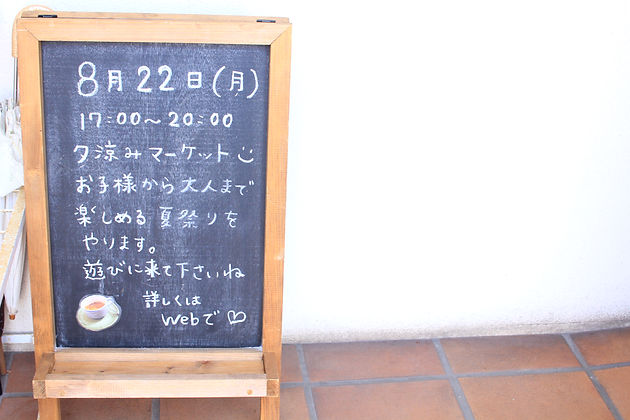 8月22日(月)
17:00〜20:00
夕涼みマーケット
お子様から大人まで
楽しめる夏祭りを
やります。
遊びに来て下さいね
詳しくは
Webで♡